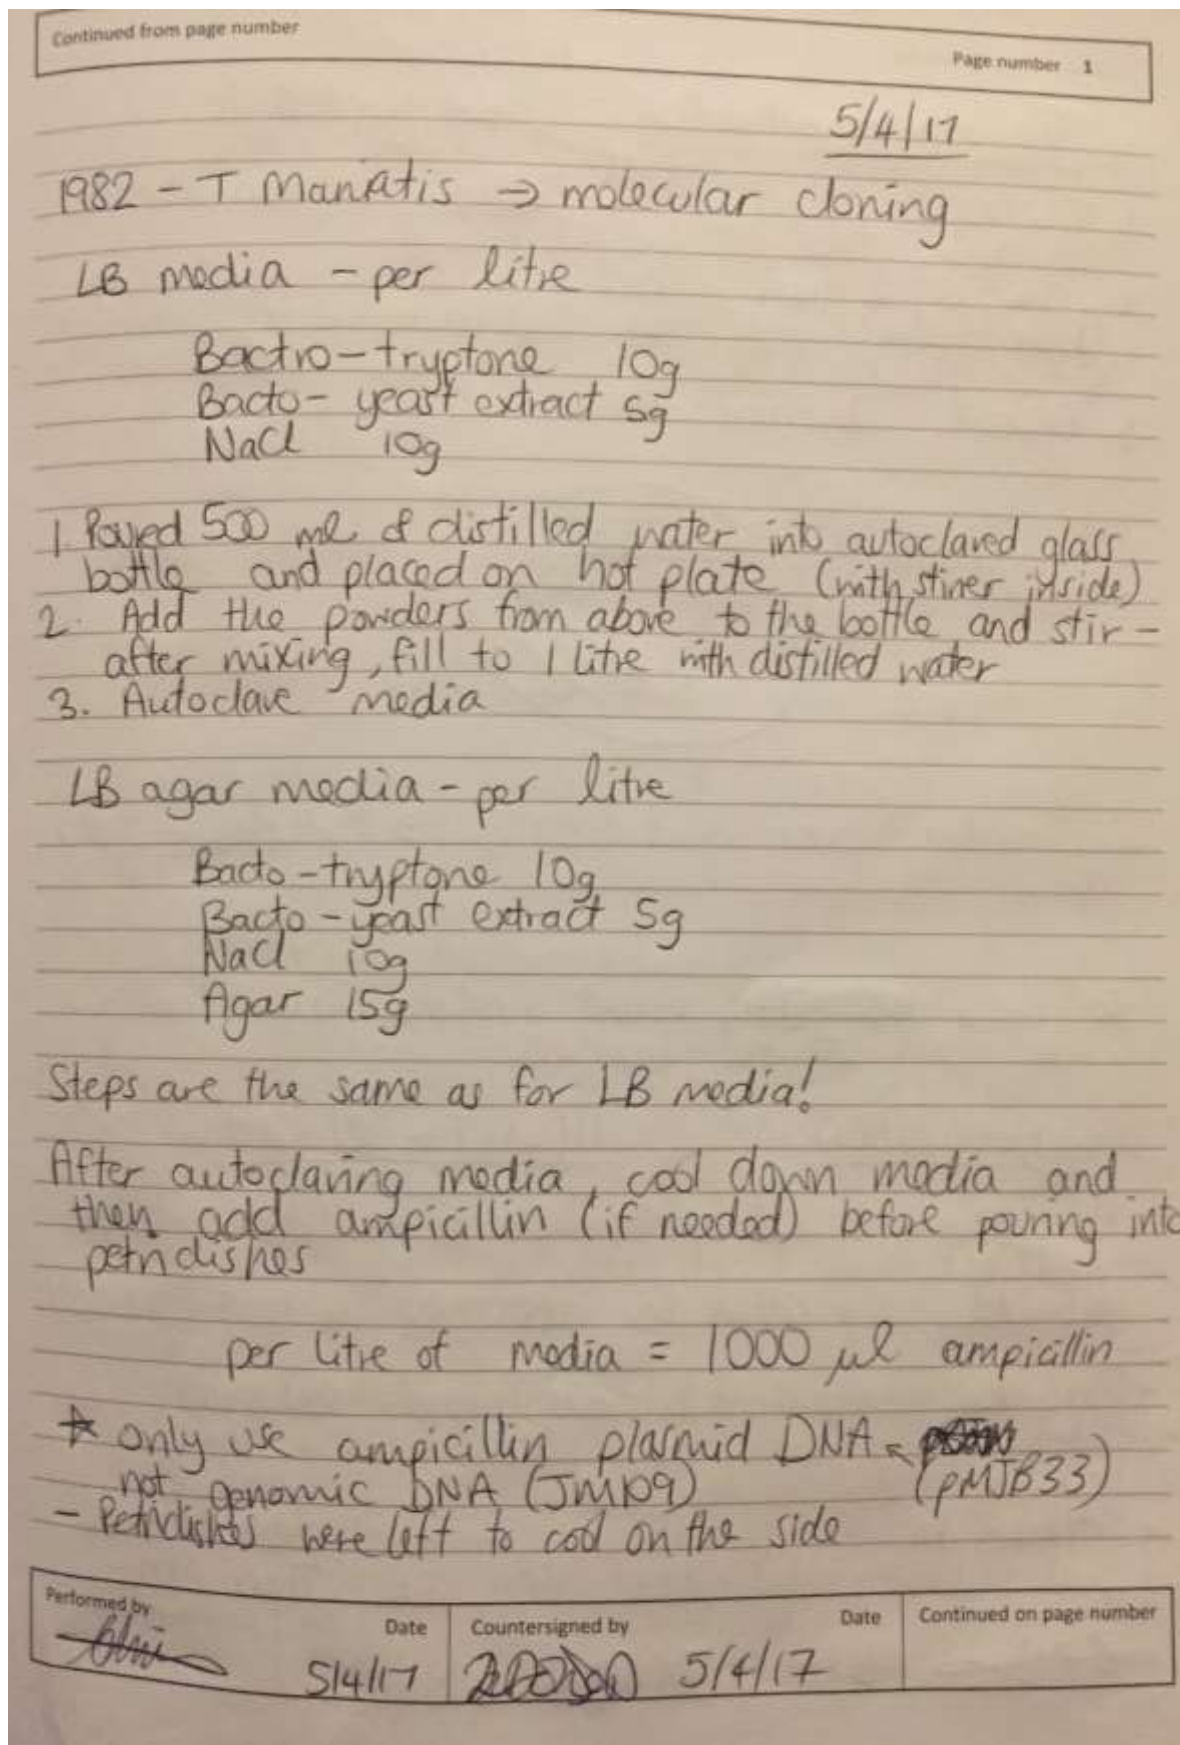 Continued from page number
Page number 1
5/4/17
1982 - T Maniatis → molecular cloning
LB media - per litre
Bactro-tryptone 10g
Bacto-yeast extract 5g
NaCl 10g
1 Poured 500 ml of distilled water into autoclaved glass
bottle and placed on hot plate (with stirrer inside)
2. Add the powders from above to the bottle and stir -
after mixing, fill to 1 litre with distilled water
3. Autoclave media
LB agar media - per litre
Bacto-tryptone 10g
Bacto-yeast extract 5g
NaCl 10g
Agar 15g
Steps are the same as for LB media!
After autoclaving media, cool down media and
then add ampicillin (if needed) before pouring into
petridishes
per litre of media = 1000 µl ampicillin
* only use ampicillin plasmid DNA
not genomic DNA (JM109) (pMJB33)
- Petridishes were left to cool on the side
Performed by Date Countersigned by Date Continued on page number
5/4/17 5/4/17